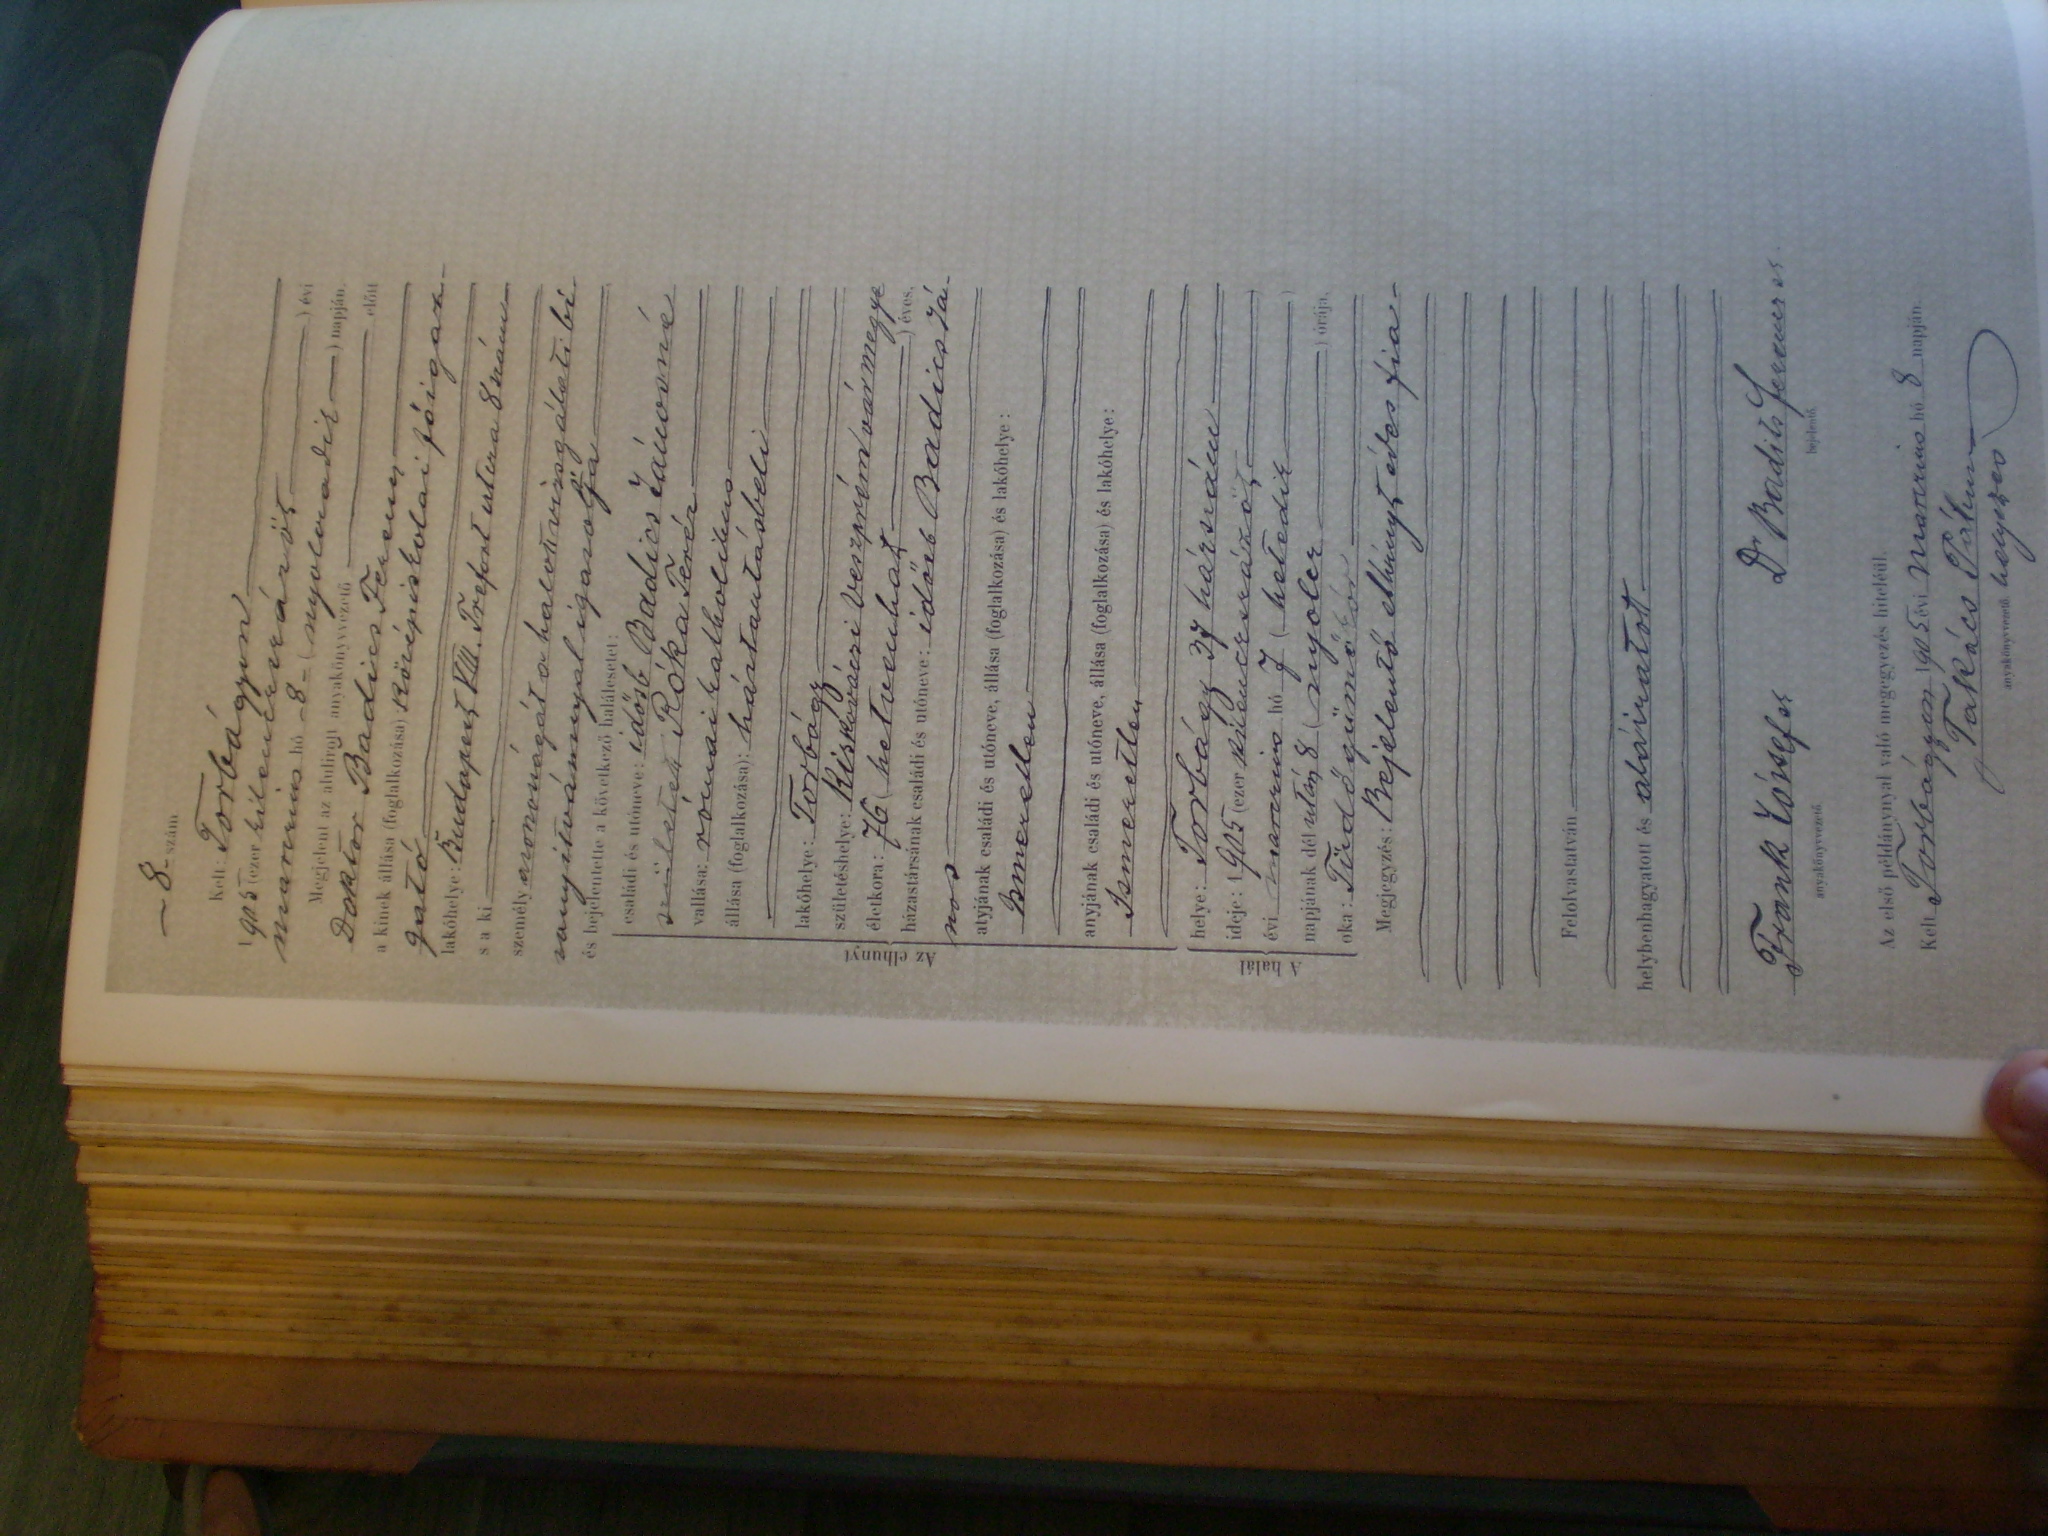 – 8 – szám
Kelt: Torbágyon
1905 (ezer kilenczszázöt) évi
marczius hó 8 – (nyolczadik) napján.
Megjelent az alulirott anyakönyvvezető előtt
Doktor Badics Ferencz
a kinek állása (foglalkozása) középiskolai főigaz-
gató
lakóhelye: Budapest VIII. Trefort utcza 8 szám
s a ki
személyazonosságát a halottvizsgálati bi-
zonyitvánnyal igazolja
és bejelentette a következő halálesetet:
Az elhunyt
családi és utóneve: idősb Badics Jánosné
született Róka Teréz
vallása: római katholikus
állása (foglalkozása): háztartásbeli
lakóhelye: Torbágy
születéshelye: Kiskovácsi Veszprém vármegye
életkora: 76 (hetvenhat) éves,
házastársának családi és utóneve: idősb Badics Já-
nos
atyjának családi és utóneve, állása (foglalkozása) és lakóhelye:
Ismeretlen
anyjának családi és utóneve, állása (foglalkozása) és lakóhelye:
Ismeretlen
A halál
helye: Torbágy 37 házszám
ideje: 1905 (ezer kilenczszázöt)
évi marczius hó 7 (hetedik)
napjának dél után 8 (nyolcz) órája,
oka: Tüdőgümőkór
Megjegyzés: Bejelentő elhúnyt édes fia –
Felolvastatván
helybenhagyatott és aláiratott –
Frank József Dr Badits Ferencz sr.
anyakönyvvezető. bejelentő.
Az első példánynyal való megegyezés hiteléül.
Kelt Torbágyon 1905 évi Marczius hó 8 napján.
Takács Pálma
anyakönyvvezető helyettes